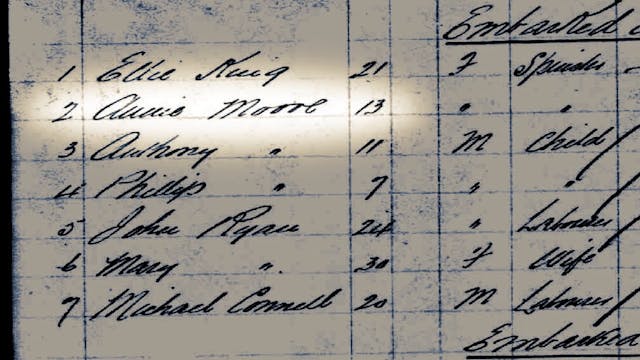 Embarked
1 Ellie King 21 F Spinster
2 Annie Moore 13 " "
3 Anthony " 11 M Child
4 Phillip " 7 " "
5 John Ryan 24 " Labourer
6 Mary " 30 F Wife
7 Michael Connell 20 M Labourer
Embarked